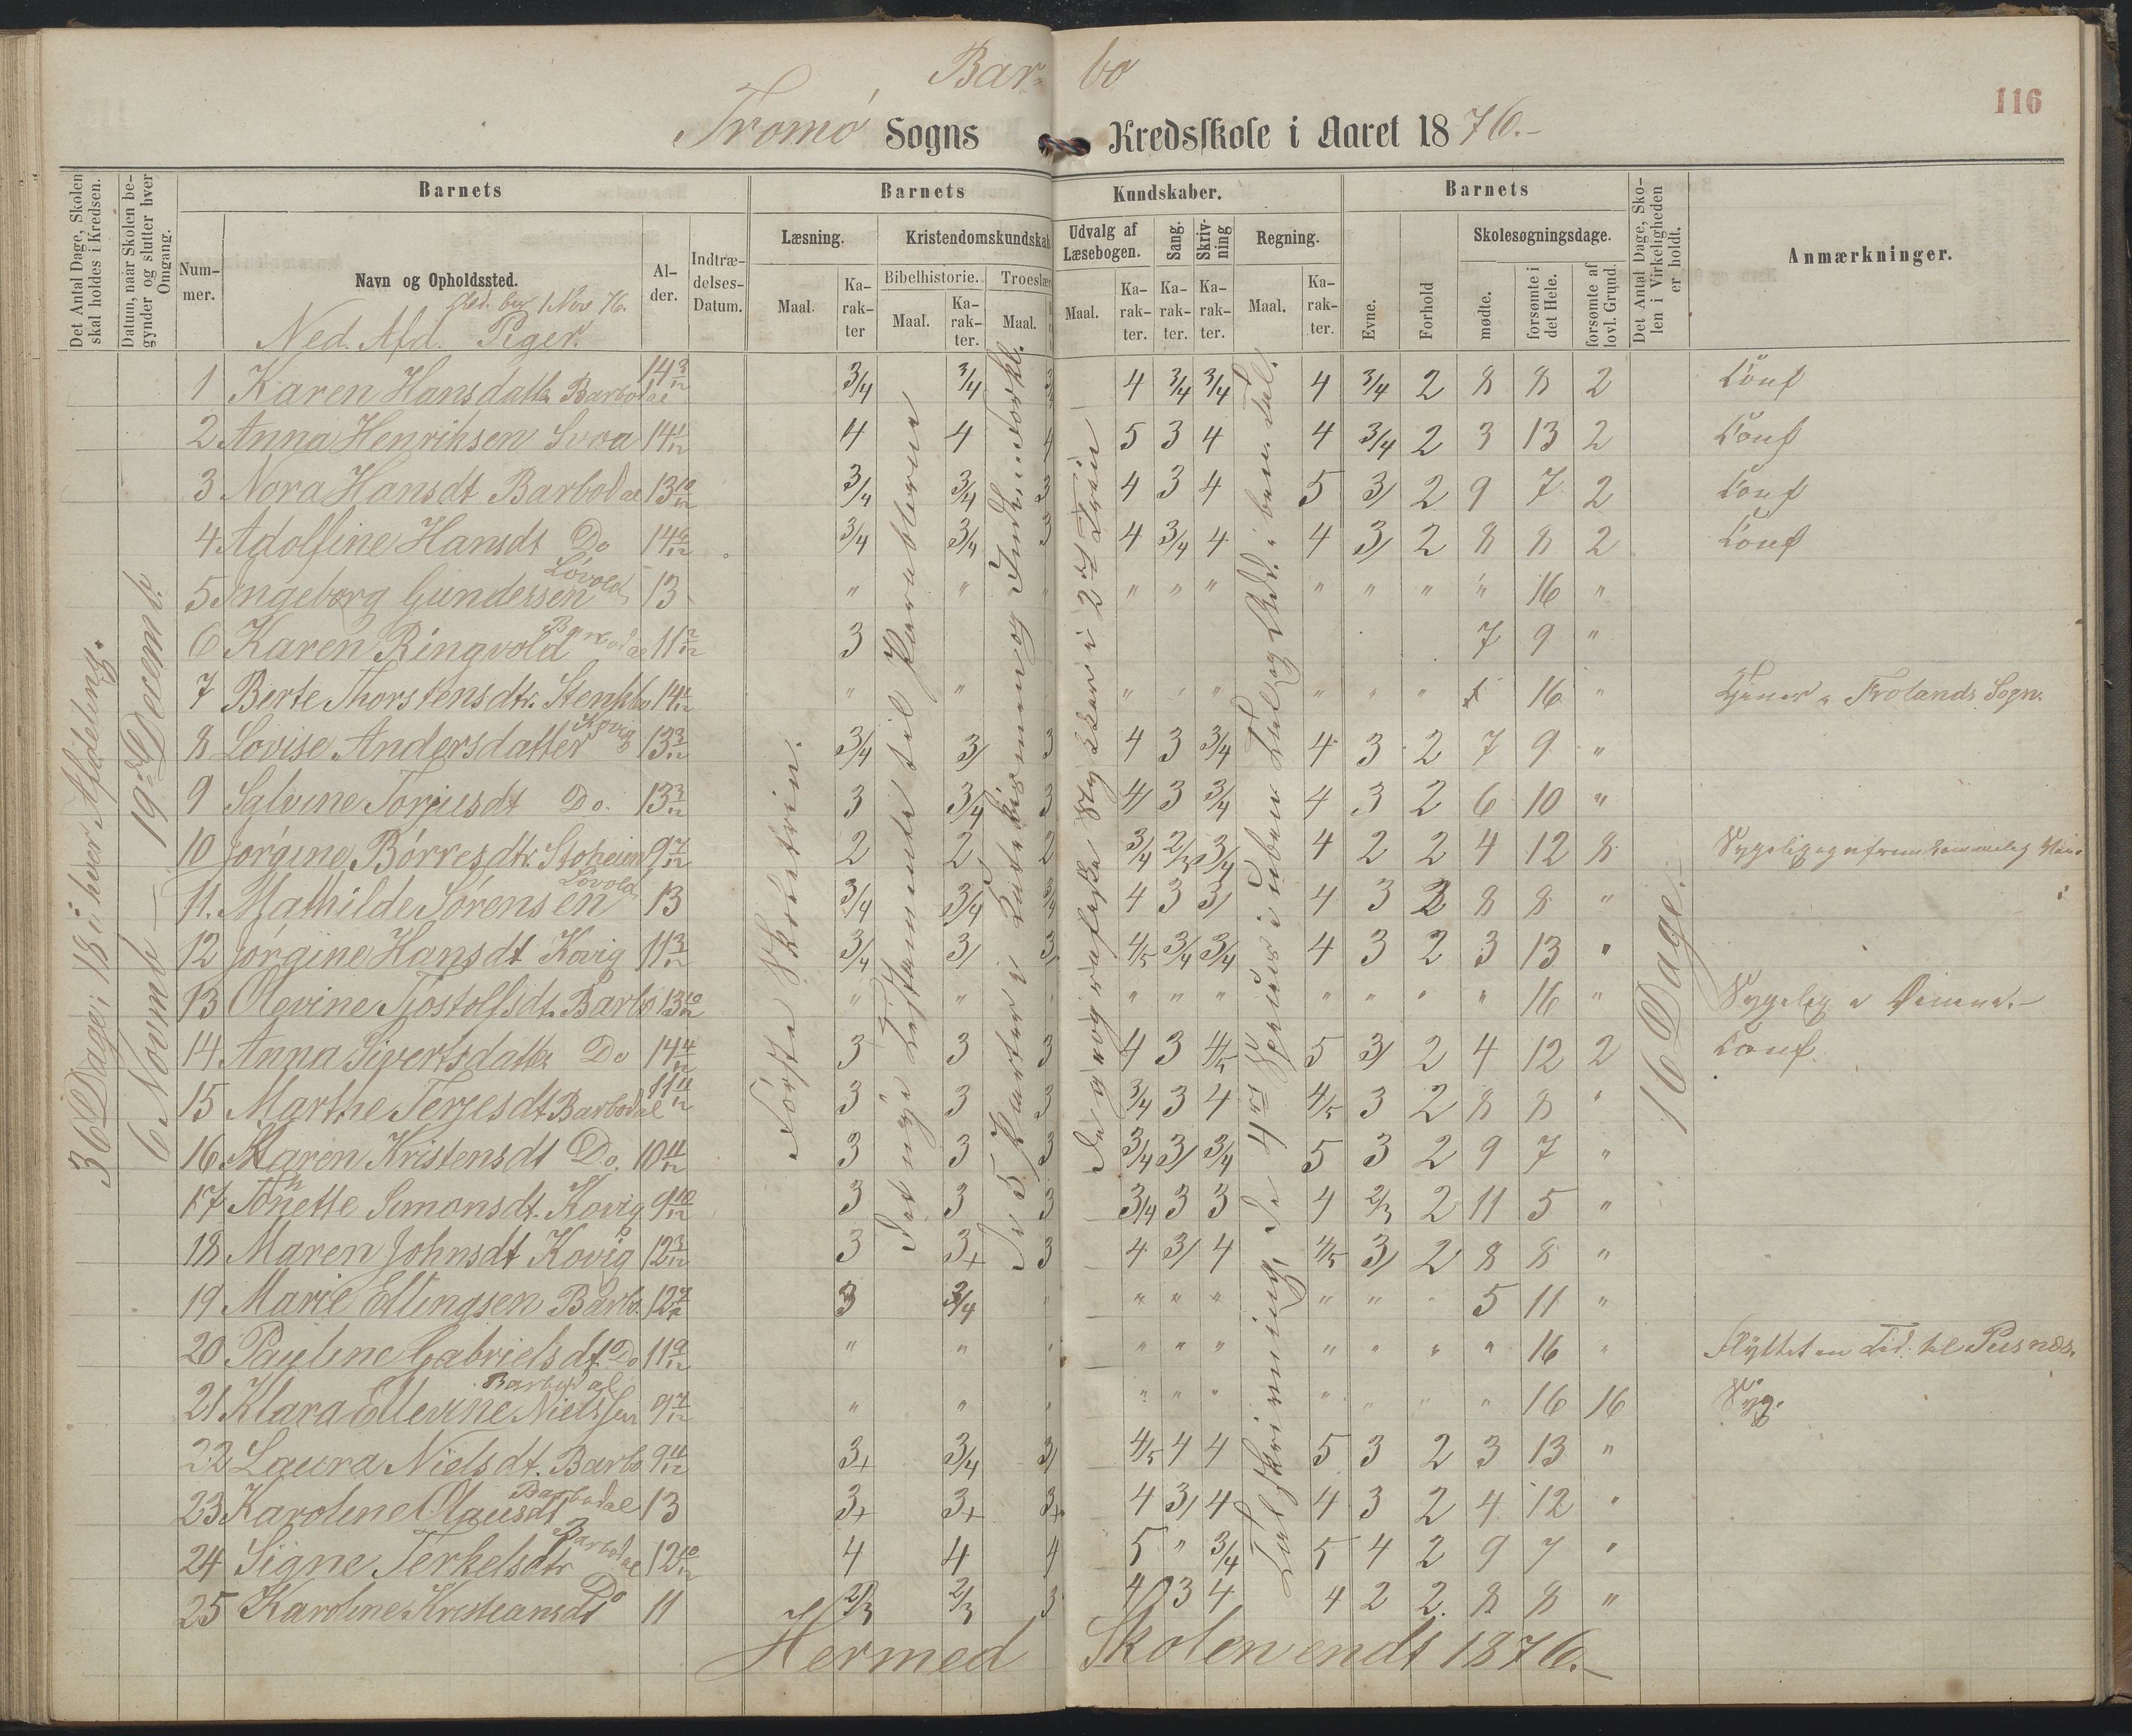 Bar- bo
116
Tromö Sogns Kredsskole i Aaret 1876.-
Det Antal Dage, Skolen skal holdes i Kredsen.
Datum, naar Skolen begynder og slutter hver Omgang.
Barnets
Barnets Kundskaber.
Barnets
Det Antal Dage, Skolen i Virkeligheden er holdt.
Anmærkninger.
Nummer.
Navn og Opholdssted.
Alder.
Indtrædelses-Datum.
Læsning.
Kristendomskundskab
Udvalg af Læsebogen.
Sang.
Skrivning
Regning.
Evne.
Forhold
Skolesøgningsdage.
Maal.
Karakter
Bibelhistorie.
Troeslære
Maal.
Karakter.
Maal.
Maal.
Karakter.
Karakter.
Karakter.
Maal.
Karakter.
mødte.
forsømte i det Hele.
forsømte af lovl. Grund.
1 Nov 76.
Ned. Afd. Piger.
36 Dage; 18 i hver Afdeling.
6 Novmb - 19de Decemb.
Første Skoletrin.
Det nye Testamente til Parablerne
De 5 Parter i Katekismen og Forkl.
De geografiske Stykker i 2det Trin
Talskrivning, de 4 Species i
16 Dage.
1 Karen Hansdattr Barbodal 14 3/12 3/4 3/4 4 3/4 3/4 4 3/4 2 8 8 2 Conf
2 Anna Henriksen Svoa 14 1/12 4 4 4 5 3 4 4 3/4 2 3 13 2 Conf
3 Nora Hansdt Barbodal 13 10/12 3/4 3/4 3 4 3 4 5 3/ 2 9 7 2 Conf
4 Adolfine Hansdt Do 14 3/4 3/4 3 4 3/4 4 4 3/ 2 8 8 2 Conf
5 Ingeborg Gundersen Lövold 13 " " " " " " " " " " 16 "
6 Karen Ringvold Barbodal 11 3 7 9 "
7 Berte Thorstensdtr. 14 " " " " " " " 16 " Tjener i Frolands Sogn.
8 Lovise Andersdatter Kovig 13 3/12 3/4 3/ 3 4 3 3/4 4 3 2 7 9 "
9 Salvine Torjusdt Do. 13 3/12 3 3/4 3 4/ 3 3/4 4 3 2 6 10 "
10 Jörgine Börresdtr. 9 7/12 2 2 2 3/4 2/3 3/4 4 2 2 4 12 8 Sygelig og
11. Mathilde Sörensen Lövold 13 3/4 3/4 3/4 4 3 3/ 4 3 2 8 8 "
12 Jörgine Hansdt Kovig 11 3/12 3/4 3/ 3/ 4/5 3/4 3/4 4 3 2 3 13 "
13 Olevine Tjostolfsdt. Barbo 13 10/12 " " " " " " " " " " 16 " Sygelig
14 Anna Sivertsdattr Do 14 4/12 3 3 3 4 3 4/5 5 3/ 2 4 12 2 Conf.
15 Marthe Terjesdt Barbodal 11 11/12 3 3 3 3/4 3 4 4/5 3 2 8 8 "
16 Maren Kristensdt Do. 10 11/12 3 3 3 3/4 3/ 3/4 5 3 2 9 7 "
17 Tönnette Simonsdt. Kovig 9 10/12 3 3 3 3/4 3 3 4 2/3 2 11 5 "
18 Maren Johnsdt Kovig 12 3/12 3 3+ 3 4 3/ 4 4/5 3/ 2 8 8 "
19 Marie Ellingsen Barbo. 12 3 3/4 " " " " " " " 5 11 "
20 Pauline Gabrielsdt. Do 11 9/12 " " " " " " " " " " 16 " Flyttet en Tid til Pusnæs.
21 Klara Ellevine Nielssen Barbodal 9 7/12 " " " " " " " " " " 16 16 Syg.
22 Laura Nielsdt. Barbo 9 11/12 3+ 3/4 3/ 4/5 4 4 5 3 2 3 13 "
23 Karoline Olausdt Barbodal 13 3+ 3+ 3+ 4 3/ 4 4 3 2 4 12 "
24 Signe Terkelsdtr Barbodal 12 10/12 4 4 4 5 " 3/4 5 4 2 9 7 "
25 Karoline Kristiansdt Do 11 2/3 2/3 3 4 3 4 4 2 2. 8 8 "
Hermed Skolen endt 1876.-